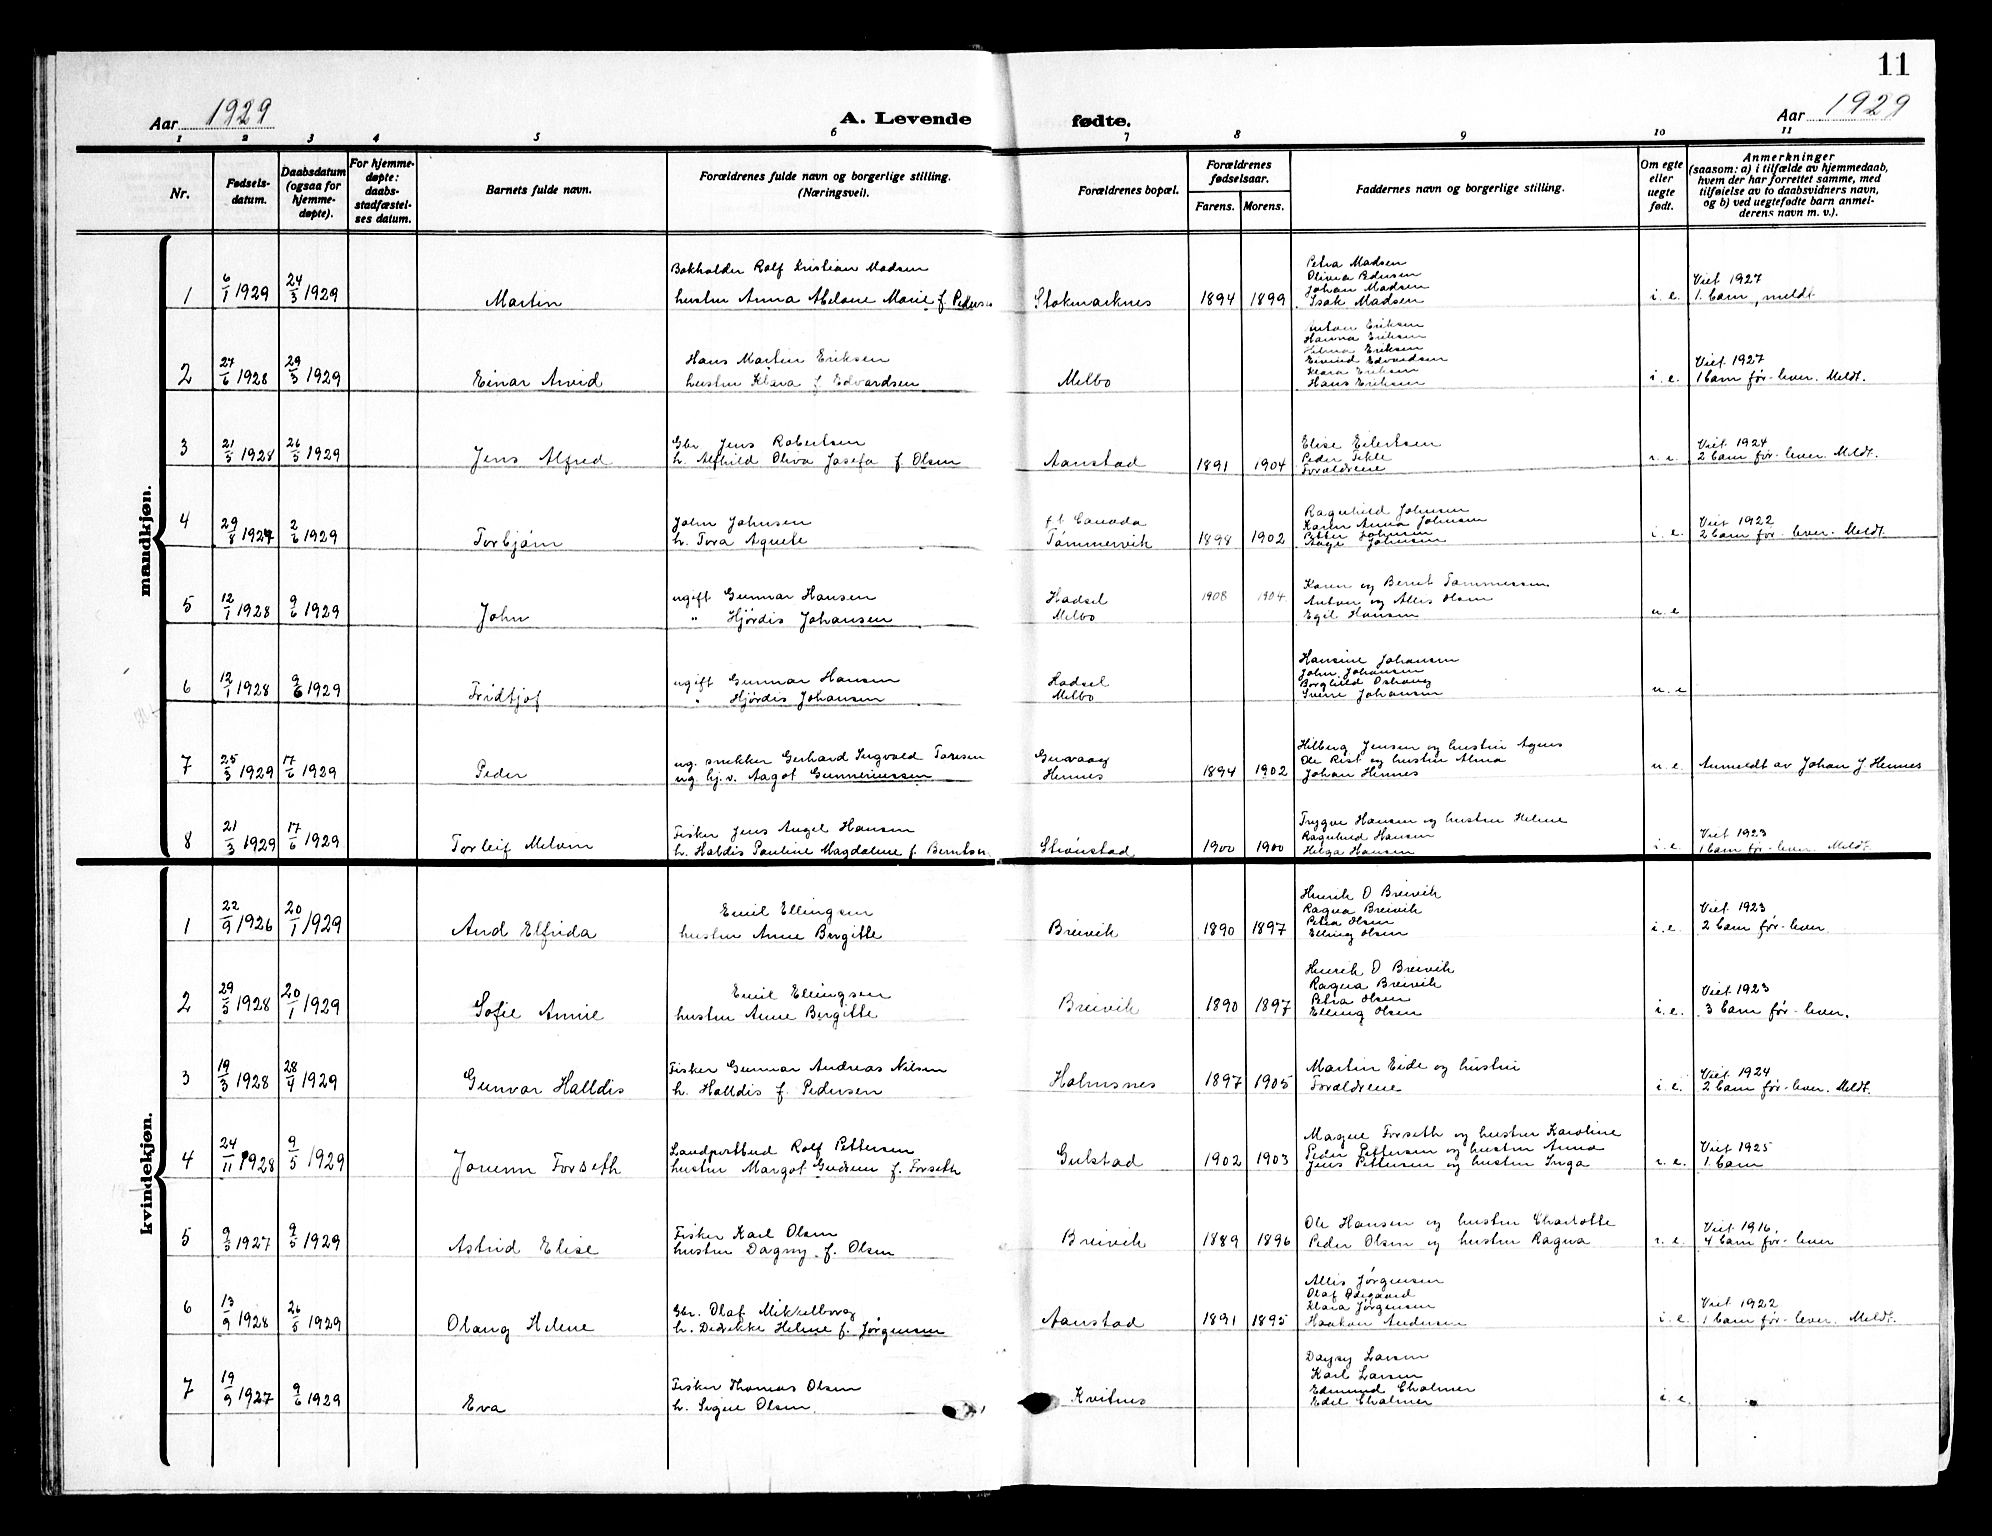 11
Aar 1929
A. Levende fødte.
Aar 1929
1 2 3 4 5 6 7 8 9 10 11
Nr.
Fødsels-
datum.
Daabsdatum
(ogsaa for
hjemme-
døpte).
For hjemme-
døpte:
daabs-
stadfæstel-
ses datum.
Barnets fulde navn.
Forældrenes fulde navn og borgerlige stilling.
(Næringsvei).
Forældrenes bopæl.
Forældrenes
fødselsaar.
Farens. Morens.
Faddernes navn og borgerlige stilling.
Om egte
eller
uegte
født.
Anmerkninger
(saasom: a) i tilfælde av hjemmedaab,
hvem der har forrettet samme, med
tilføielse av to daabsvidners navn,
og b) ved uegtefødte barn anmel-
derens navn m. v.).
mandkjøn.
1 6/1 1929 24/3 1929 Martin
Bokholder Rolf Kristian Madsen
hustru Anna Helene Marie f. Peders
Stokmarknes 1894 1899
Petra Madsen
Olivia Pedersen
Johan Madsen
Isak Madsen
i. e.
Viet 1927
1. barn, meldt
2 27/6 1928 29/3 1929 Einar Arvid
Hans Martin Eriksen
hustru Klara f. Edvardsen
Melbo
Anton Eriksen
Hanna Eriksen
Eriksen
Eivind Edvardsen
Klara Eriksen
Hans Eriksen
i. e.
Viet 1927
1 barn før - lever. Meldt.
3 21/3 1928 26/5 1929 Jens Alfred
Gbr Jens Robertsen
h. Alfhild Oliva Josefa f. Olsen
Aanstad 1891 1904
Elise Eilertsen
Peder Tekle
Forældrene
i. e.
Viet 1924
2 barn før - lever. Meldt.
4 29/8 1927 2/6 1929 Torbjørn
John Johnsen
h. Tora Agnete
f.t. Canada
Tømmervik 1898 1902
Ragnhild Johnsen
Karen Anna Johnsen
Petter Johnsen
Aage Johnsen
i. e.
Viet 1922
2 barn før - lever. Meldt.
5 12/1 1928 9/6 1929 John
ugift Gunnar Hansen
" Hjørdis Johansen
Hadsel
Melbo
1908 1904
Karen og Bernt Tommessen
Anton og Allis Olsen
Egil Hansen
u. e
6 12/1 1928 9/6 1929 Fridtjof
ugift Gunnar Hansen
" Hjørdis Johansen
Hadsel
Melbo
Hansine Johansen
John Johansen
Borghild Oshaug
Sverre Johansen
u. e
7 25/3 1929 17/6 1929 Peder
ug. snekker Gerhard Ingvald Toresen
ug. hj. v. Aagot Gunneriussen
Guvaag
Hennes
1894 1902
Hilberg Jensen og hustru Agnes
Ole Rist og hustru Alma
Johan Hennes
u. e.
Anmeldt av Johan J Hennes
8 21/3 1929 17/6 1929 Torleif Melvin
Fisker Jens Angel Hansen
h. Haldis Pauline Magdalene f. Berntsen
Strønstad 1900 1900
Trygve Hansen og hustru Helene
Ragnhild Hansen
Helga Hansen
i. e.
Viet 1923
1 barn før - lever. Meldt.
kvindekjøn.
1 22/9 1926 20/1 1929 Aud Elfrida
Emil Ellingsen
hustru Anne Bergitte
Breivik 1890 1897
Henrik O Breivik
Ragna Breivik
Petra Olsen
Elling Olsen
i. e.
Viet 1923
2 barn før - lever
2 29/5 1928 20/1 1929 Sofie Annie
Emil Ellingsen
hustru Anne Bergitte
Breivik 1890 1897
Henrik O Breivik
Ragna Breivik
Petra Olsen
Elling Olsen
i. e.
Viet 1923
3 barn før - lever.
3 19/3 1928 28/4 1929 Gunvor Halldis
Fisker Gunnar Andreas Nilsen
h. Halldis f. Pedersen
Holmsnes 1897 1905
Martin Eide og hustru
Forældrene
i. e.
Viet 1924
2 barn før - lever. Meldt.
4 24/11 1928 9/5 1929 Jorunn Forseth
Landpostbud Rolf Pettersen
hustru Margot Gudrun f. Forseth
Gulstad 1902 1903
Magne Forseth og hustru Karoline
Peder Pettersen og hustru Anna
Jens Pettersen og hustru Inga
i. e.
Viet 1925
1. barn
5 9/5 1927 9/5 1929 Astrid Elise
Fisker Karl Olsen
hustru Dagny f. Olsen
Breivik 1889 1896
Ole Hansen og hustru Charlotte
Peder Olsen og hustru Ragna
i. e.
Viet 1916.
4 barn før - lever
6 13/9 1928 26/5 1929 Olaug Helene
Gbr. Olaf Mikkelborg
h. Dedrikke Helene f. Jørgensen
Aanstad 1891 1895
Allis Jørgensen
Olaf Ødegaard
Klara Jørgensen
Haakon Andersen
i. e.
Viet 1922
1 barn før - lever. Meldt.
7 19/9 1927 9/6 1929 Eva
Fisker Thomas Olsen
h. Signe Olsen
Kvitnes
Dagny Larsen
Karl Larsen
Edmund Cholmer
Edel Cholmer
i. e.